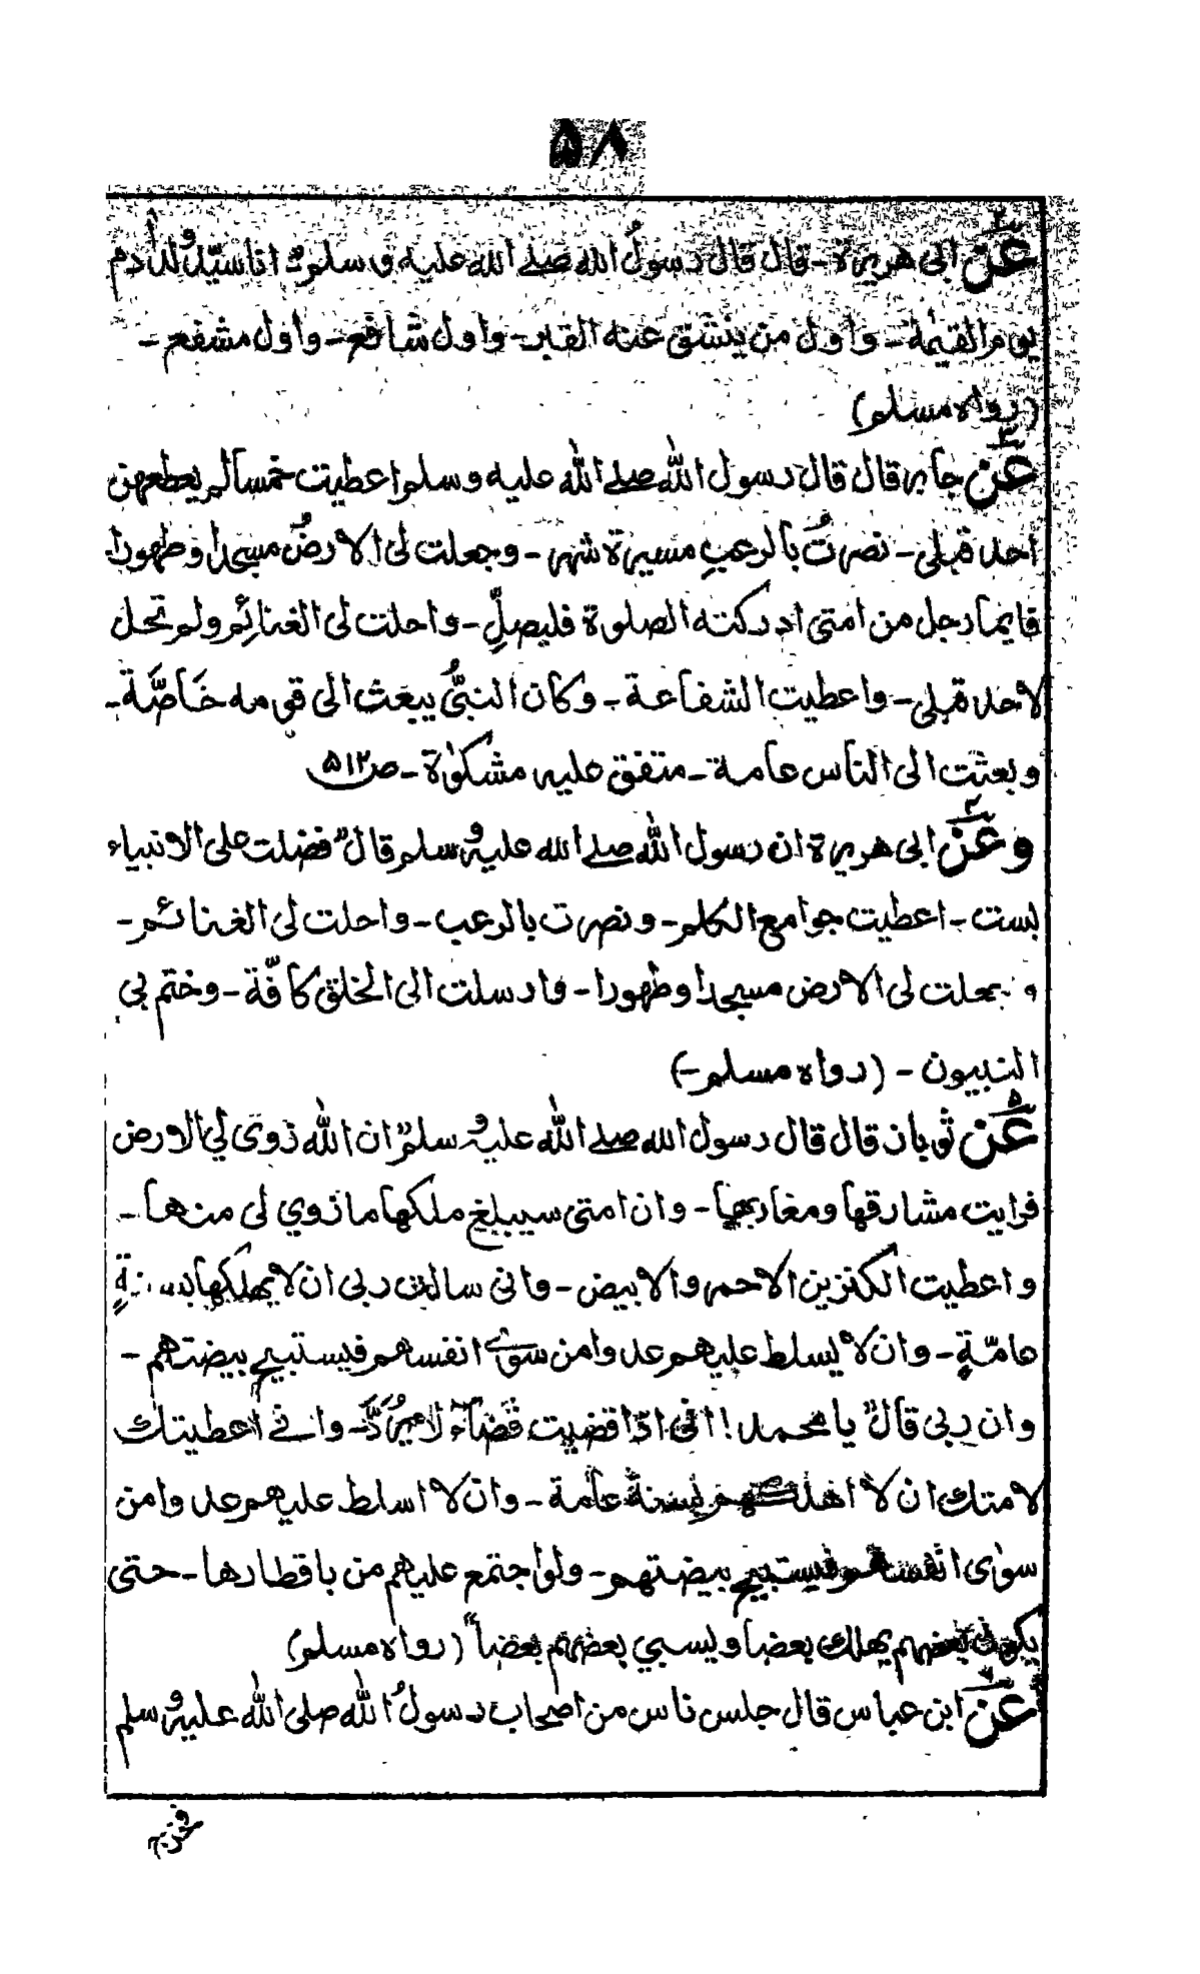 ۵۸
۲
عن ابی هریرة ـ قال قال رسولُ الله صلے الله علیه وسلم "انا سیّد ولد اٰدم
یوم القیٰمة ـ واول من ینشق عنه القبر ـ واول شافع ـ واول مشفع ـ
(رواه مسلم)
۳
عن جابر قال قال رسول الله صلے الله علیه وسلم اعطیت خمسا لم یعطهن
احد قبلی ـ نصرتُ بالرعبِ مسیرة شهر ـ وجعلت لی الارضُ مسجدا وطهورا
فایما رجل من امتی ادرکته الصلوة فلیصلِّ ـ واحلت لی الغنائم ولم تحل
لاحد قبلی ـ واعطیت الشفاعة ـ وکان النبیُّ یبعث الی قومه خَاصَّةً ـ
وبعثت الی الناس عامة ـ متفق علیه مشکوٰة ـ ص ۵۱۲
۴
وعن ابی هریرة ان رسول الله صلے الله علیه وسلم قال "فضلت علی الانبیاء
بست ـ اعطیت جوامع الکلم ـ ونصرت بالرعب ـ واحلت لی الغنائم ـ
وجعلت لی الارض مسجدا وطهورا ـ وارسلت الی الخلق کافّة ـ وختم بی
النبیون ـ (رواه مسلم ـ)
۵
عن ثوبان قال قال رسول الله صلے الله علیه وسلم "ان الله زوی لی الارض
فرایت مشارقها ومغاربها ـ وان امتی سیبلغ ملکها ما زوی لی منها ـ
واعطیت الکنزین الاحمر والابیض ـ وانی سالت ربی ان لا یهلکها بسنةٍ
عامّةٍ ـ وان لا یسلط علیهم عدوا من سوٰے انفسهم فیستبیح بیضتهم ـ
وان ربی قال "یا محمد! انی اذا قضیت قضاءً لا یُرَدُّ ـ وانے اعطیتك
لامتك ان لا اهلکهم بسنة عامة ـ وان لا اسلط علیهم عدوا من
سوٰی انفسهم فیستبیح بیضتهم ـ ولو اجتمع علیهم من باقطارها ـ حتی
یکون بعضهم یهلك بعضا ویسبی بعضهم بعضا" (رواه مسلم)
۶
عن ابن عباس قال جلس ناس من اصحاب رسولُ الله صلی الله علیه وسلم
فخرج